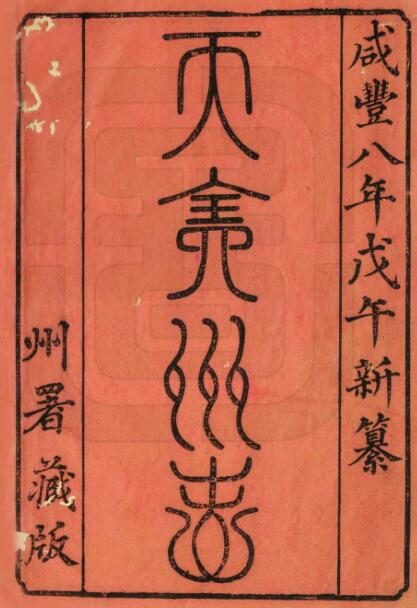 咸豐八年戊午新纂
天全州志
州署藏版